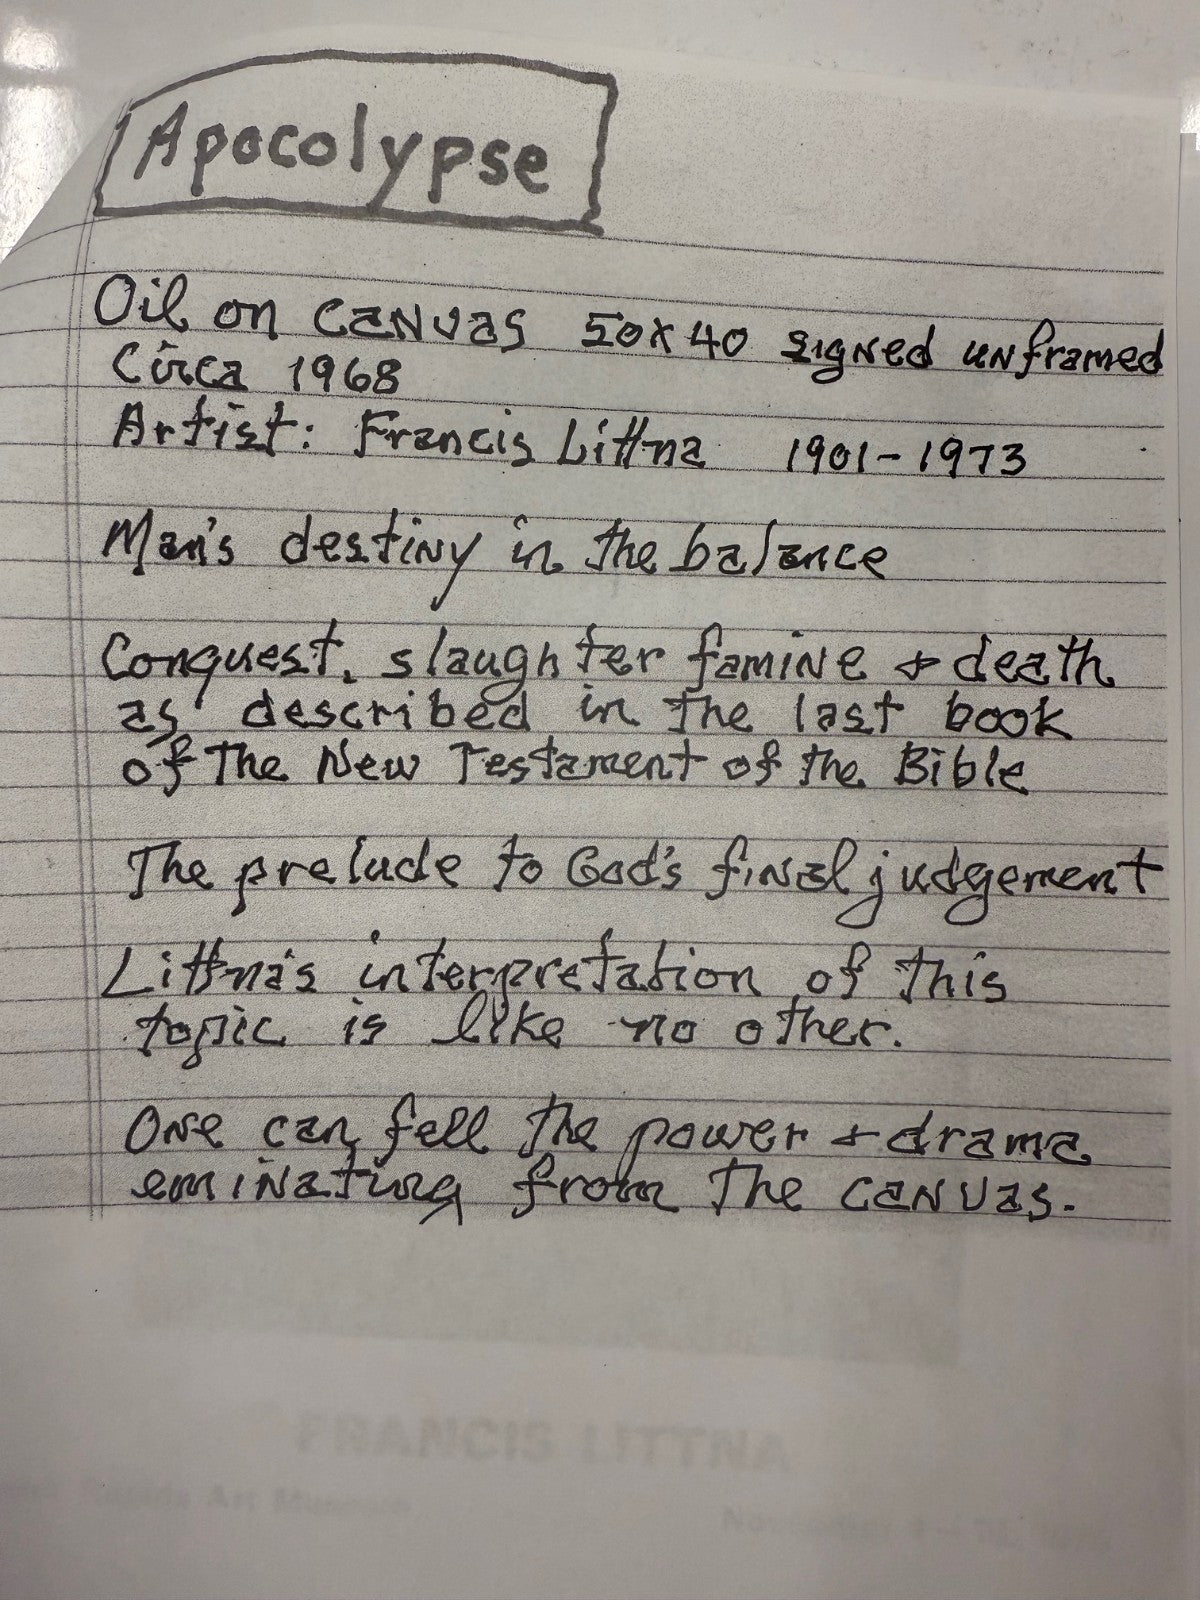 Apocolypse
Oil on canvas 50x40 signed unframed
Circa 1968
Artist: Francis Littna 1901-1973
Man's destiny in the balance
Conquest, slaughter famine & death
as described in the last book
of The New Testament of the Bible
The prelude to God's final judgement
Littna's interpretation of this
topic is like no other.
One can fell the power & drama
eminating from the canvas.
FRANCIS LITTNA
Art Museum
November